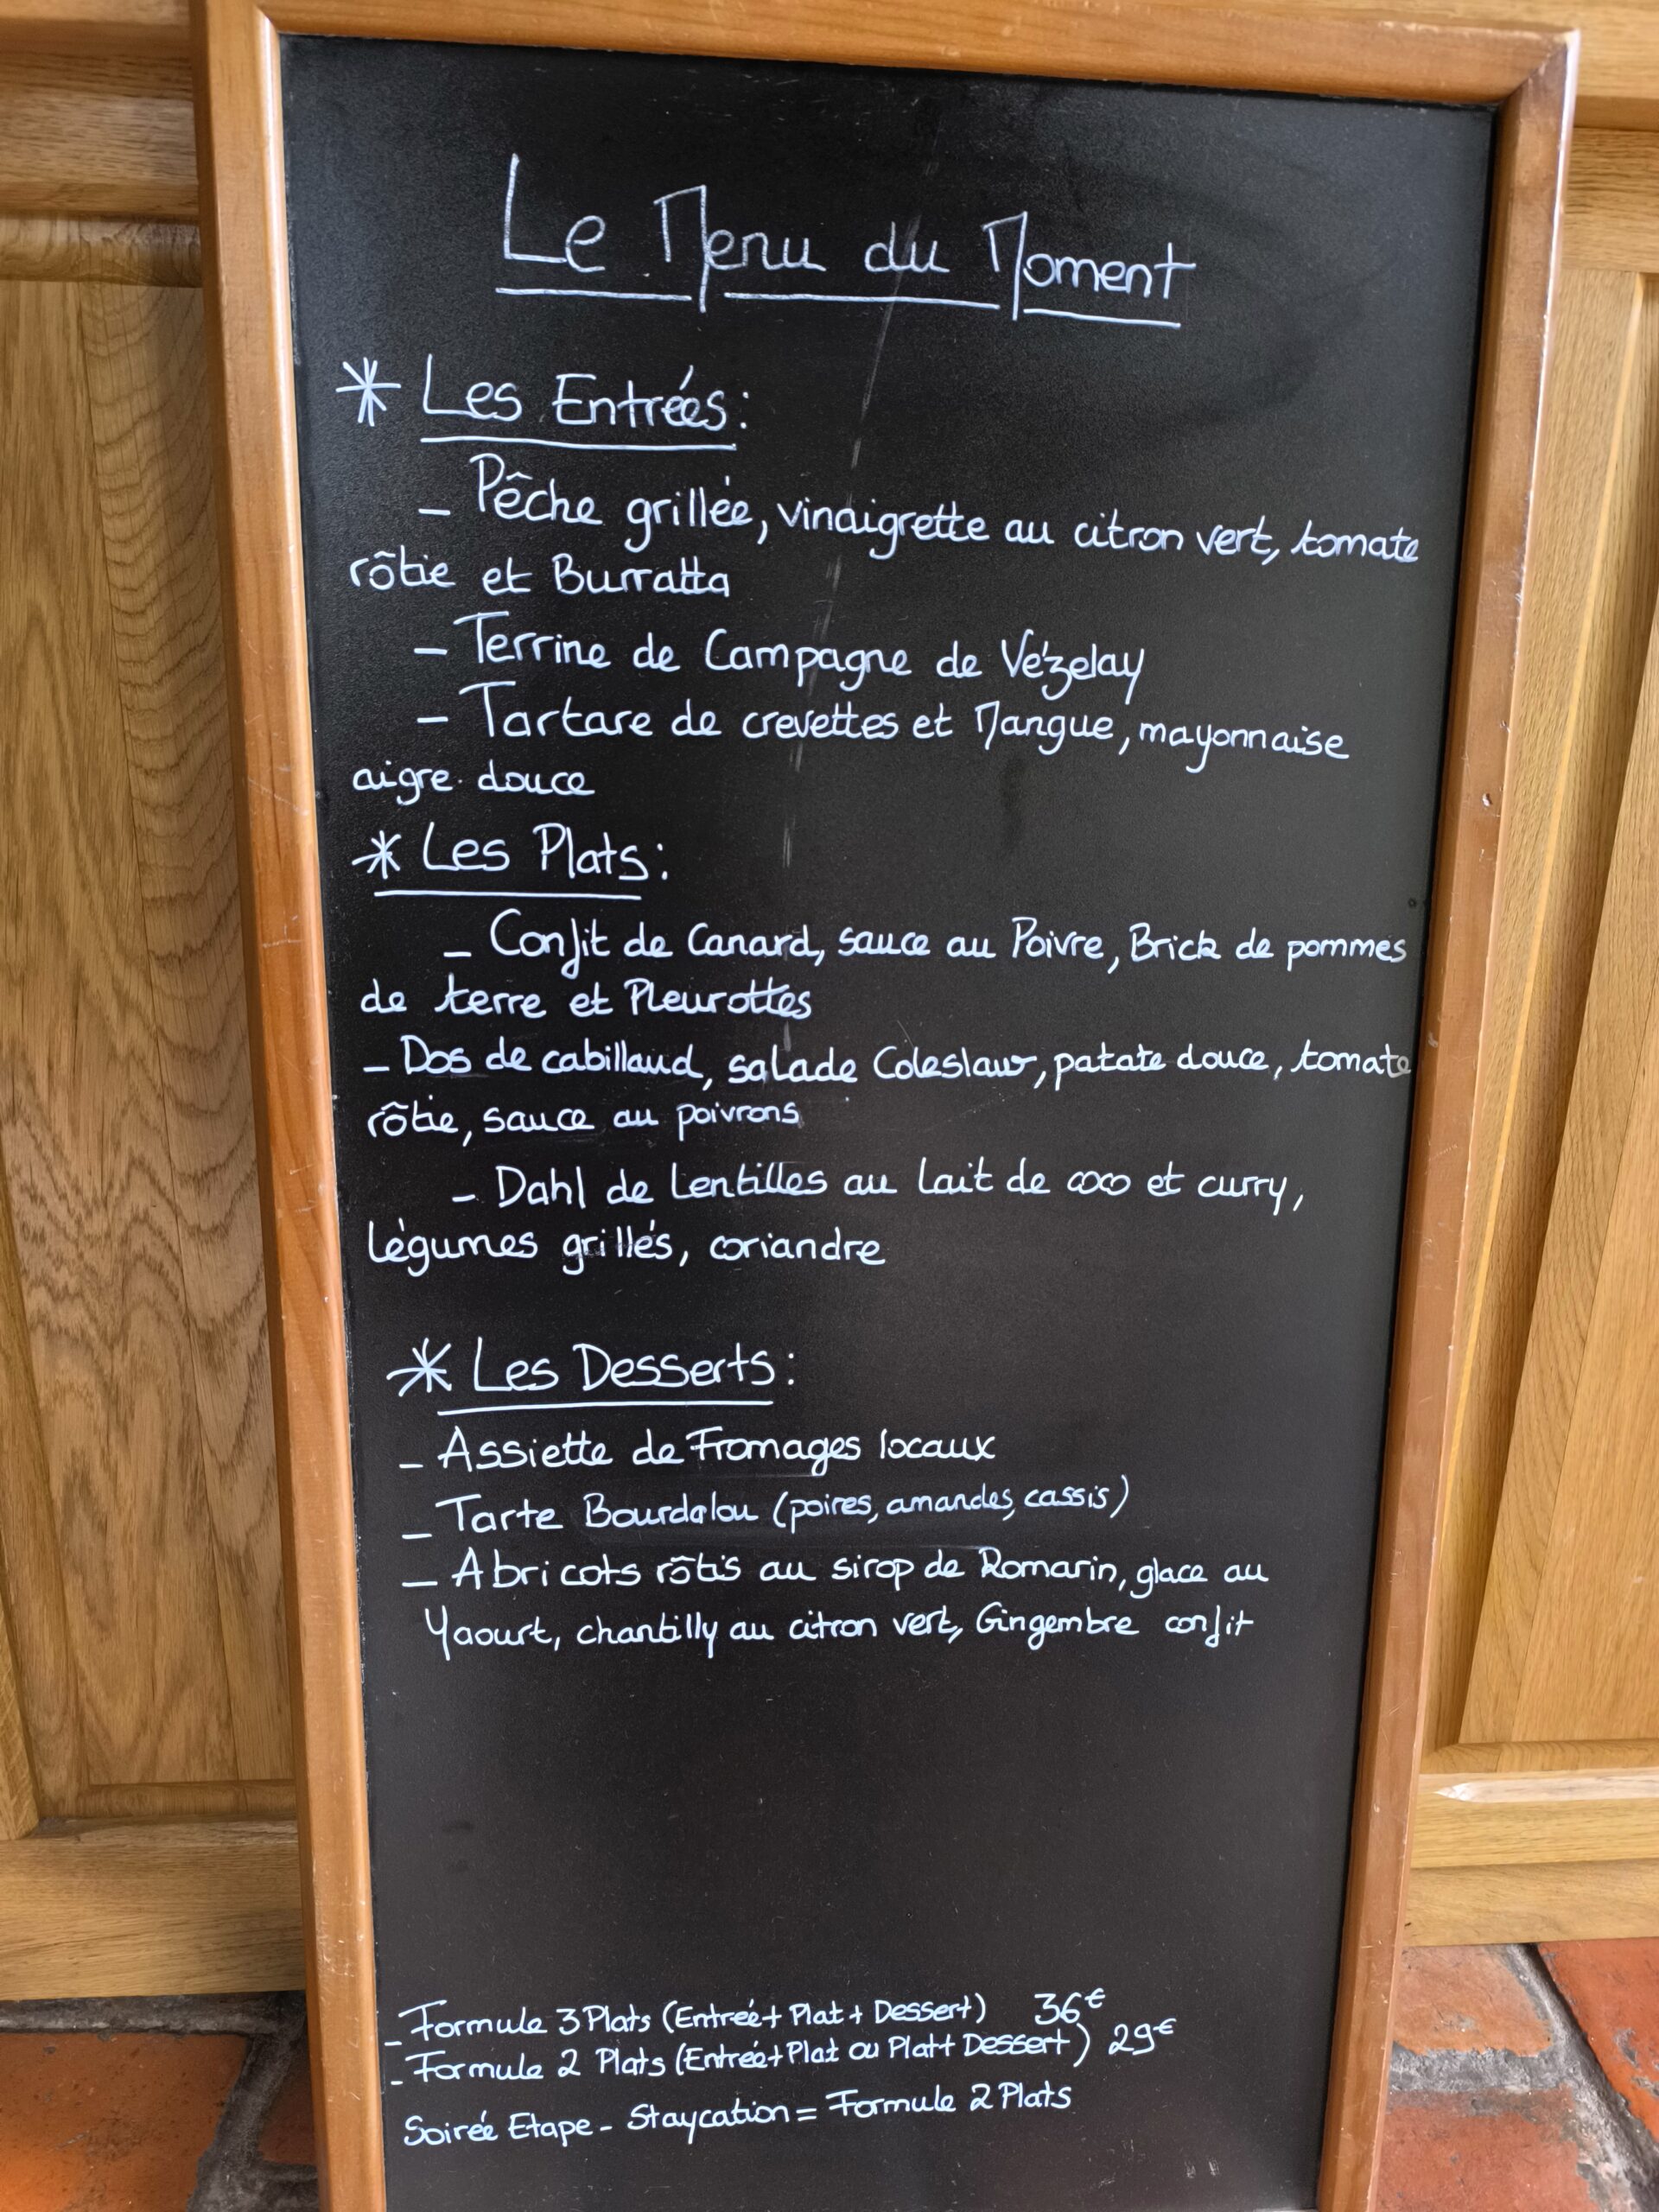 Le Menu du Moment
* Les Entrées :
- Pêche grillée, vinaigrette au citron vert, tomate
rôtie et Burratta
- Terrine de Campagne de Vézelay
- Tartare de crevettes et Mangue, mayonnaise
aigre douce
* Les Plats :
- Confit de Canard, sauce au Poivre, Brick de pommes
de terre et Pleurottes
- Dos de cabillaud, salade Coleslaw, patate douce, tomate
rôtie, sauce au poivrons
- Dahl de Lentilles au lait de coco et curry,
légumes grillés, coriandre
* Les Desserts :
- Assiette de Fromages locaux
- Tarte Bourdalou (poires, amandes, cassis)
- Abricots rôtis au sirop de Romarin, glace au
Yaourt, chantilly au citron vert, Gingembre confit
- Formule 3 Plats (Entreé + Plat + Dessert) 36€
- Formule 2 Plats (Entreé + Plat ou Plat + Dessert) 29€
Soirée Etape - Staycation = Formule 2 Plats